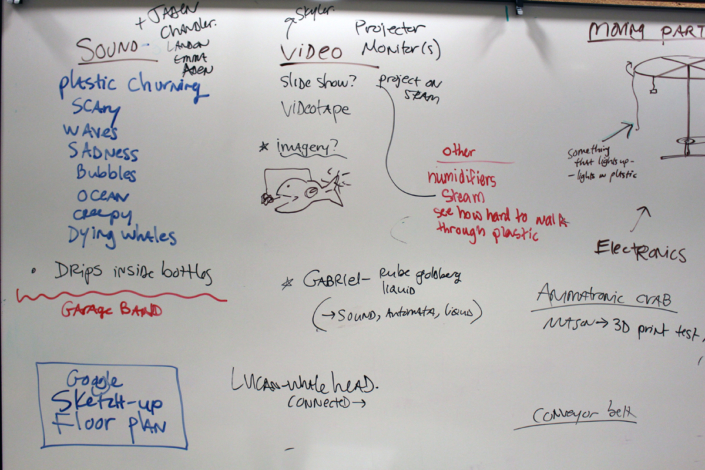 + JADEN
Chandler
LANDON
EMMA
ADEN
SOUND
plastic churning
SCARY
WAVES
SADNESS
Bubbles
OCEAN
creepy
Dying whales
• DRIPS inside bottles
GARAGE BAND
Google
Sketch-up
Floor plan
Skyler
VIDEO
Projector
Monitor(s)
slide show?
project on
STEAM
VIDEOTAPE
* imagery?
other
humidifiers
Steam
see how hard to walk
through plastic
* GABRIEL - Rube goldberg
liquid
(→ SOUND, AUTOMATA, LIQUID)
LUCAN - whale head.
CONNECTED →
MOVING PART
something
that lights up -
- lights on plastic
ELECTRONICS
ANIMATRONIC CRAB
→ 3D print test,
conveyor belt